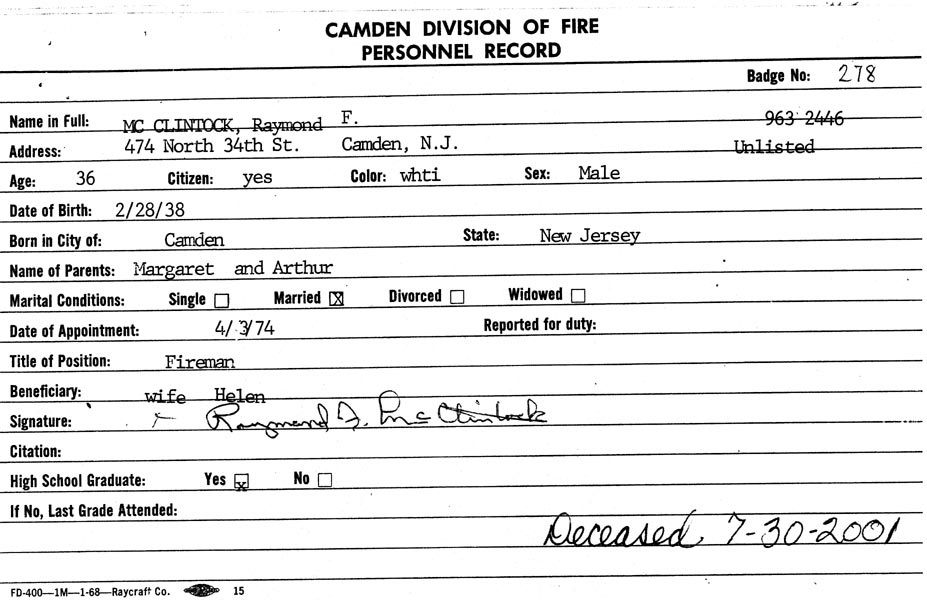 CAMDEN DIVISION OF FIRE
PERSONNEL RECORD
Badge No: 278
Name in Full: MC CLINTOCK, Raymond F. 963 2446
Address: 474 North 34th St. Camden, N.J. Unlisted
Age: 36 Citizen: yes Color: whti Sex: Male
Date of Birth: 2/28/38
Born in City of: Camden State: New Jersey
Name of Parents: Margaret and Arthur
Marital Conditions: Single Married X Divorced Widowed
Date of Appointment: 4/3/74 Reported for duty:
Title of Position: Fireman
Beneficiary: wife Helen
Signature: Raymond F. McClintock
Citation:
High School Graduate: Yes X No
If No, Last Grade Attended:
Deceased 7-30-2001
FD-400—1M—1-68—Raycraft Co. 15